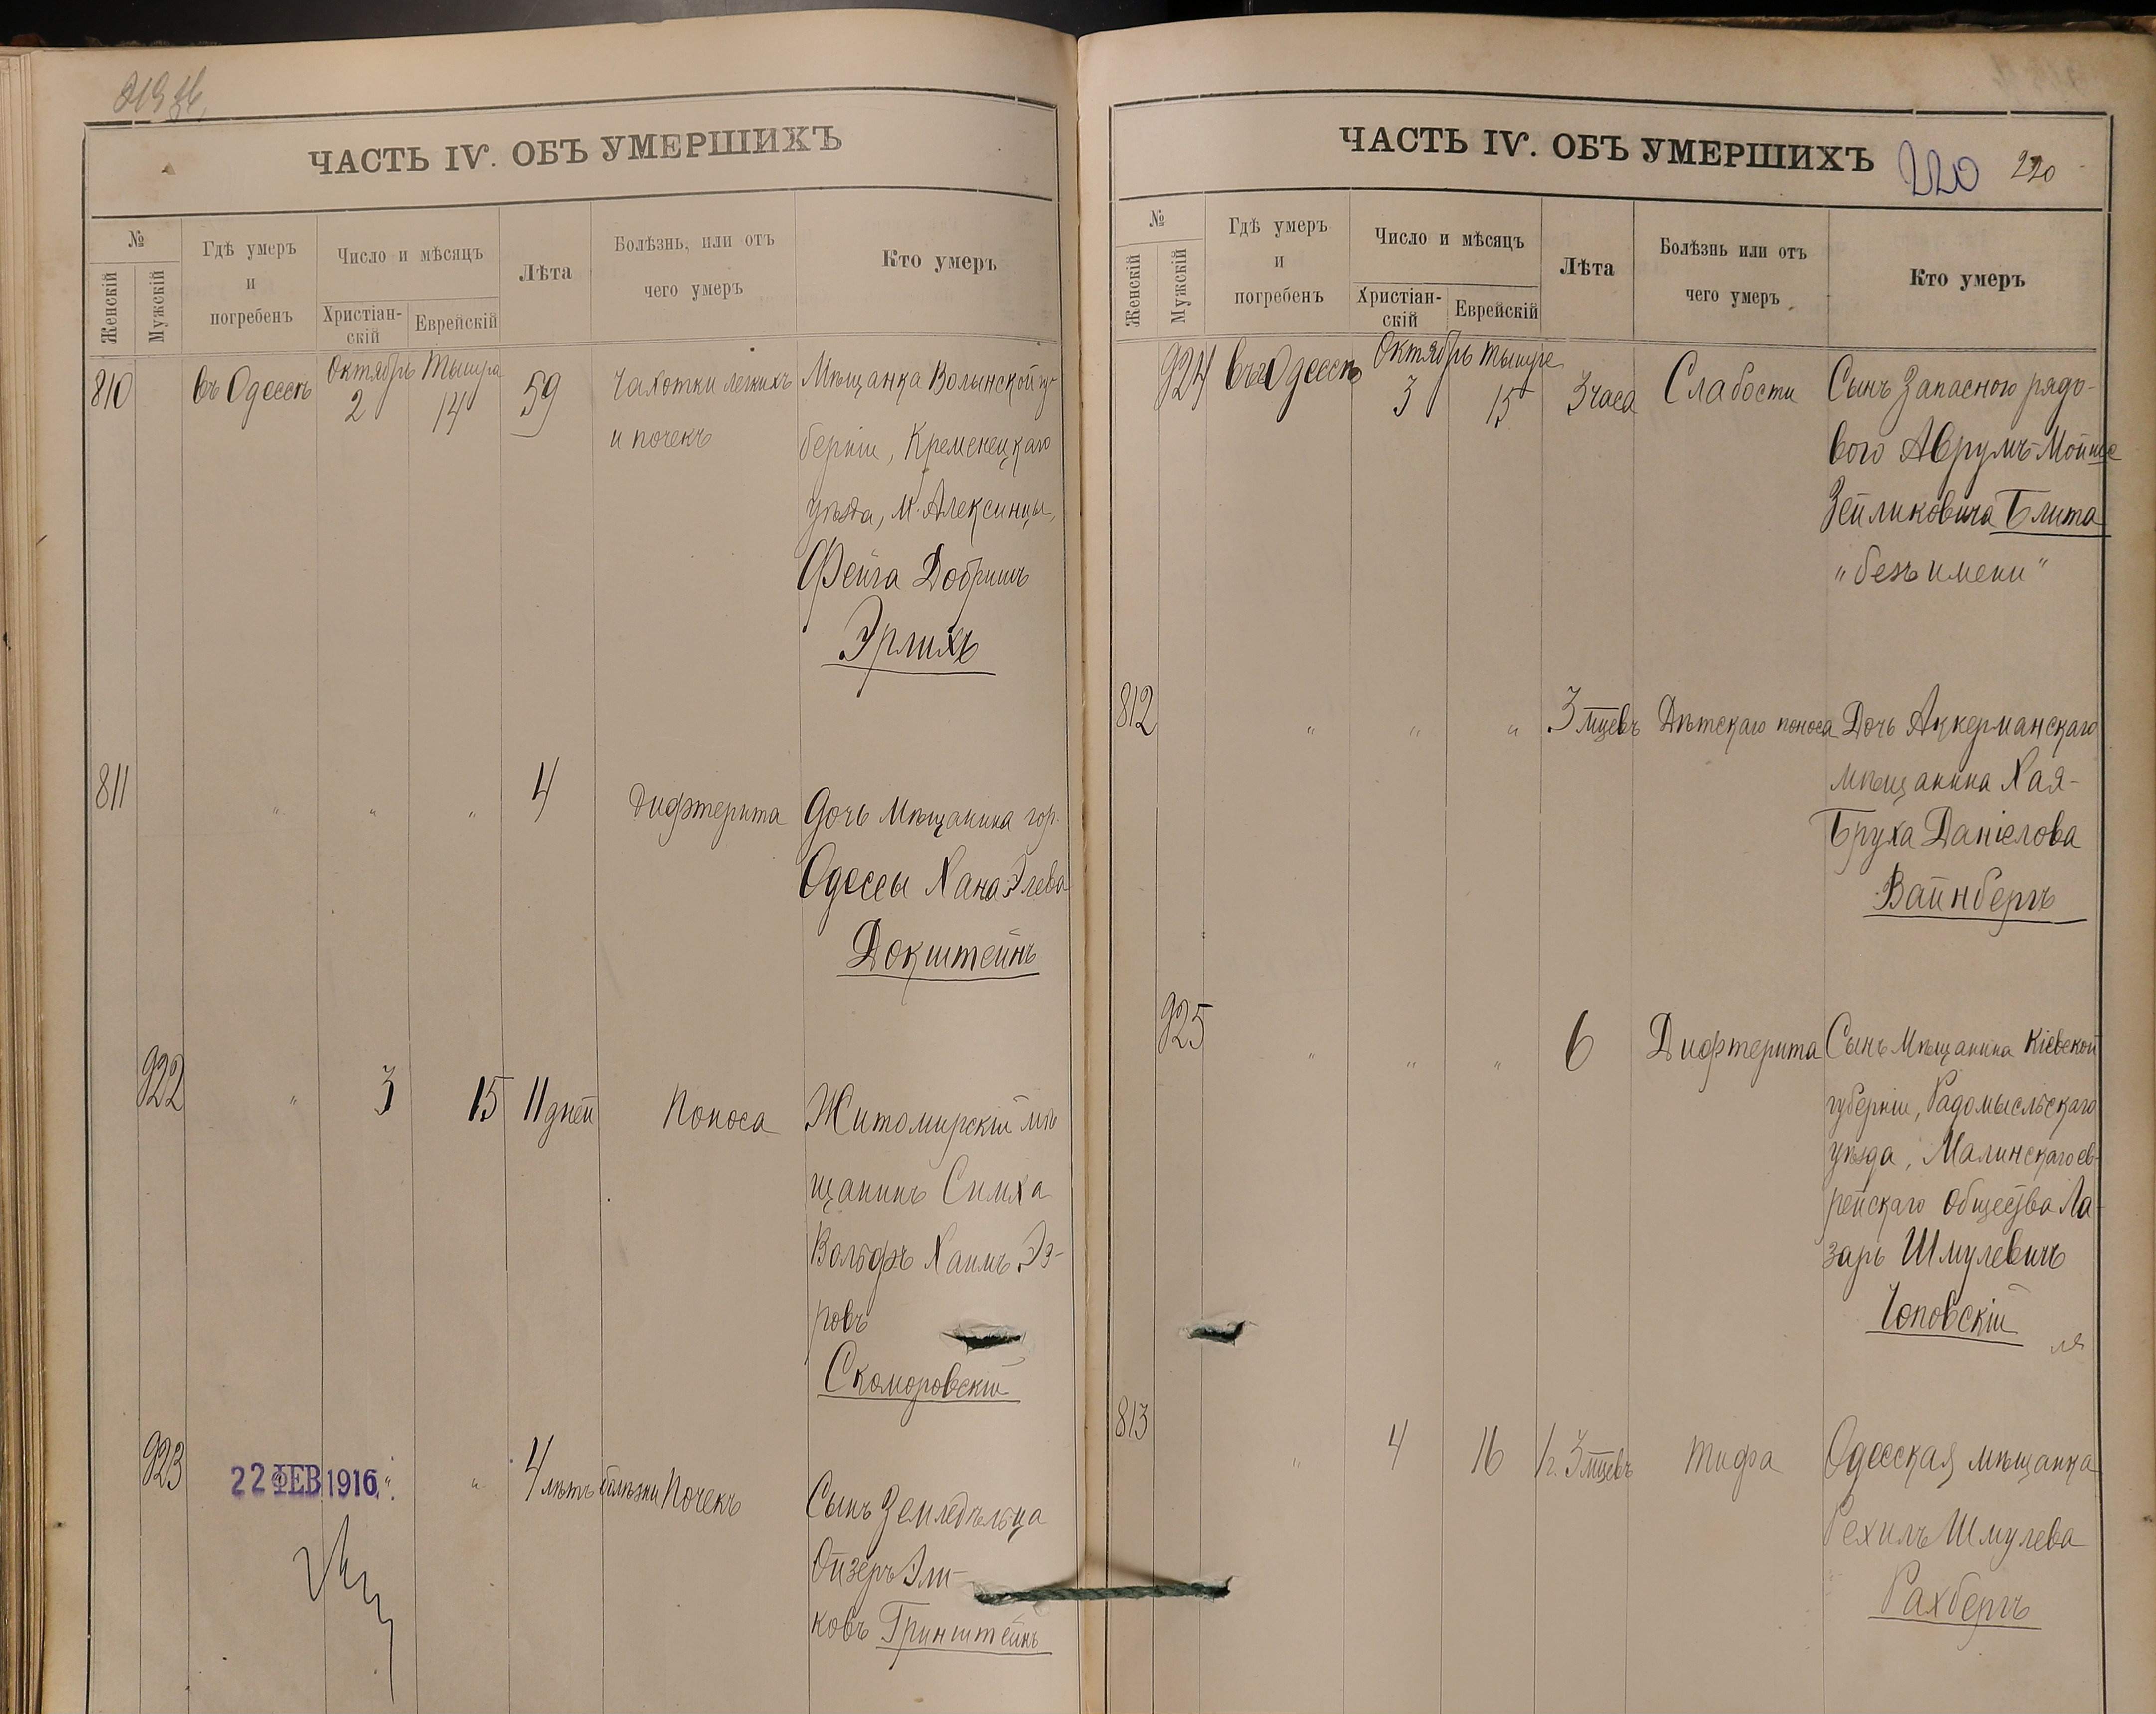 219 об.
ЧАСТЬ IV. ОБЪ УМЕРШИХЪ
№
Женскій
Мужскій
Гдѣ умеръ
и
погребенъ
Число и мѣсяцъ
Христіан-
скій
Еврейскій
Лѣта
Болѣзнь, или отъ
чего умеръ
Кто умеръ
810
въ Одессѣ
Октябрь
2
Тышра
14
59
Чахотки легкихъ
и почекъ
Мѣщанка Волынской гу-
берніи, Кременецкаго
уѣзда, м. Алексинцы,
Фейга Добришъ
Эрлихъ
811
" " "
4
Дифтерита
Дочь Мѣщанина гор.
Одессы Хана Элева
Докштейнъ
922
"
3
15
11 дней
Поноса
Житомирскій мѣ
щанинъ Симха
Вольфъ Хаимъ Эз-
ровъ
Скоморовскій
923
22 ФЕВ 1916
" "
4 лѣтъ
болѣзни Почекъ
Сынъ Земледѣльца
Ойзеръ Эли-
ковъ Гринштейнъ
ЧАСТЬ IV. ОБЪ УМЕРШИХЪ
220
220
№
Женскій
Мужскій
Гдѣ умеръ
и
погребенъ
Число и мѣсяцъ
Христіан-
скій
Еврейскій
Лѣта
Болѣзнь или отъ
чего умеръ
Кто умеръ
924
въ Одессѣ
Октябрь
3
Тышре
15
3 часа
Слабости
Сынъ Запасного рядо-
вого Аврумъ-Мойше
Зейликовича Блита
"безъ имени"
812
" " "
3 мцевъ
Дѣтскаго поноса
Дочь Аккерманскаго
мѣщанина Хая-
Бруха Даніелова
Вайнбергъ
925
" " "
6
Дифтерита
Сынъ Мѣщанина Кіевской
губерніи, Радомысльскаго
уѣзда, Малинскаго ев-
рейскаго Общества Ла-
зарь Шмулевичъ
Чоповскій
813
"
4
16
1 г. 3 мцевъ
Тифа
Одесская мѣщанка
Рехиль Шмулева
Рахбергъ